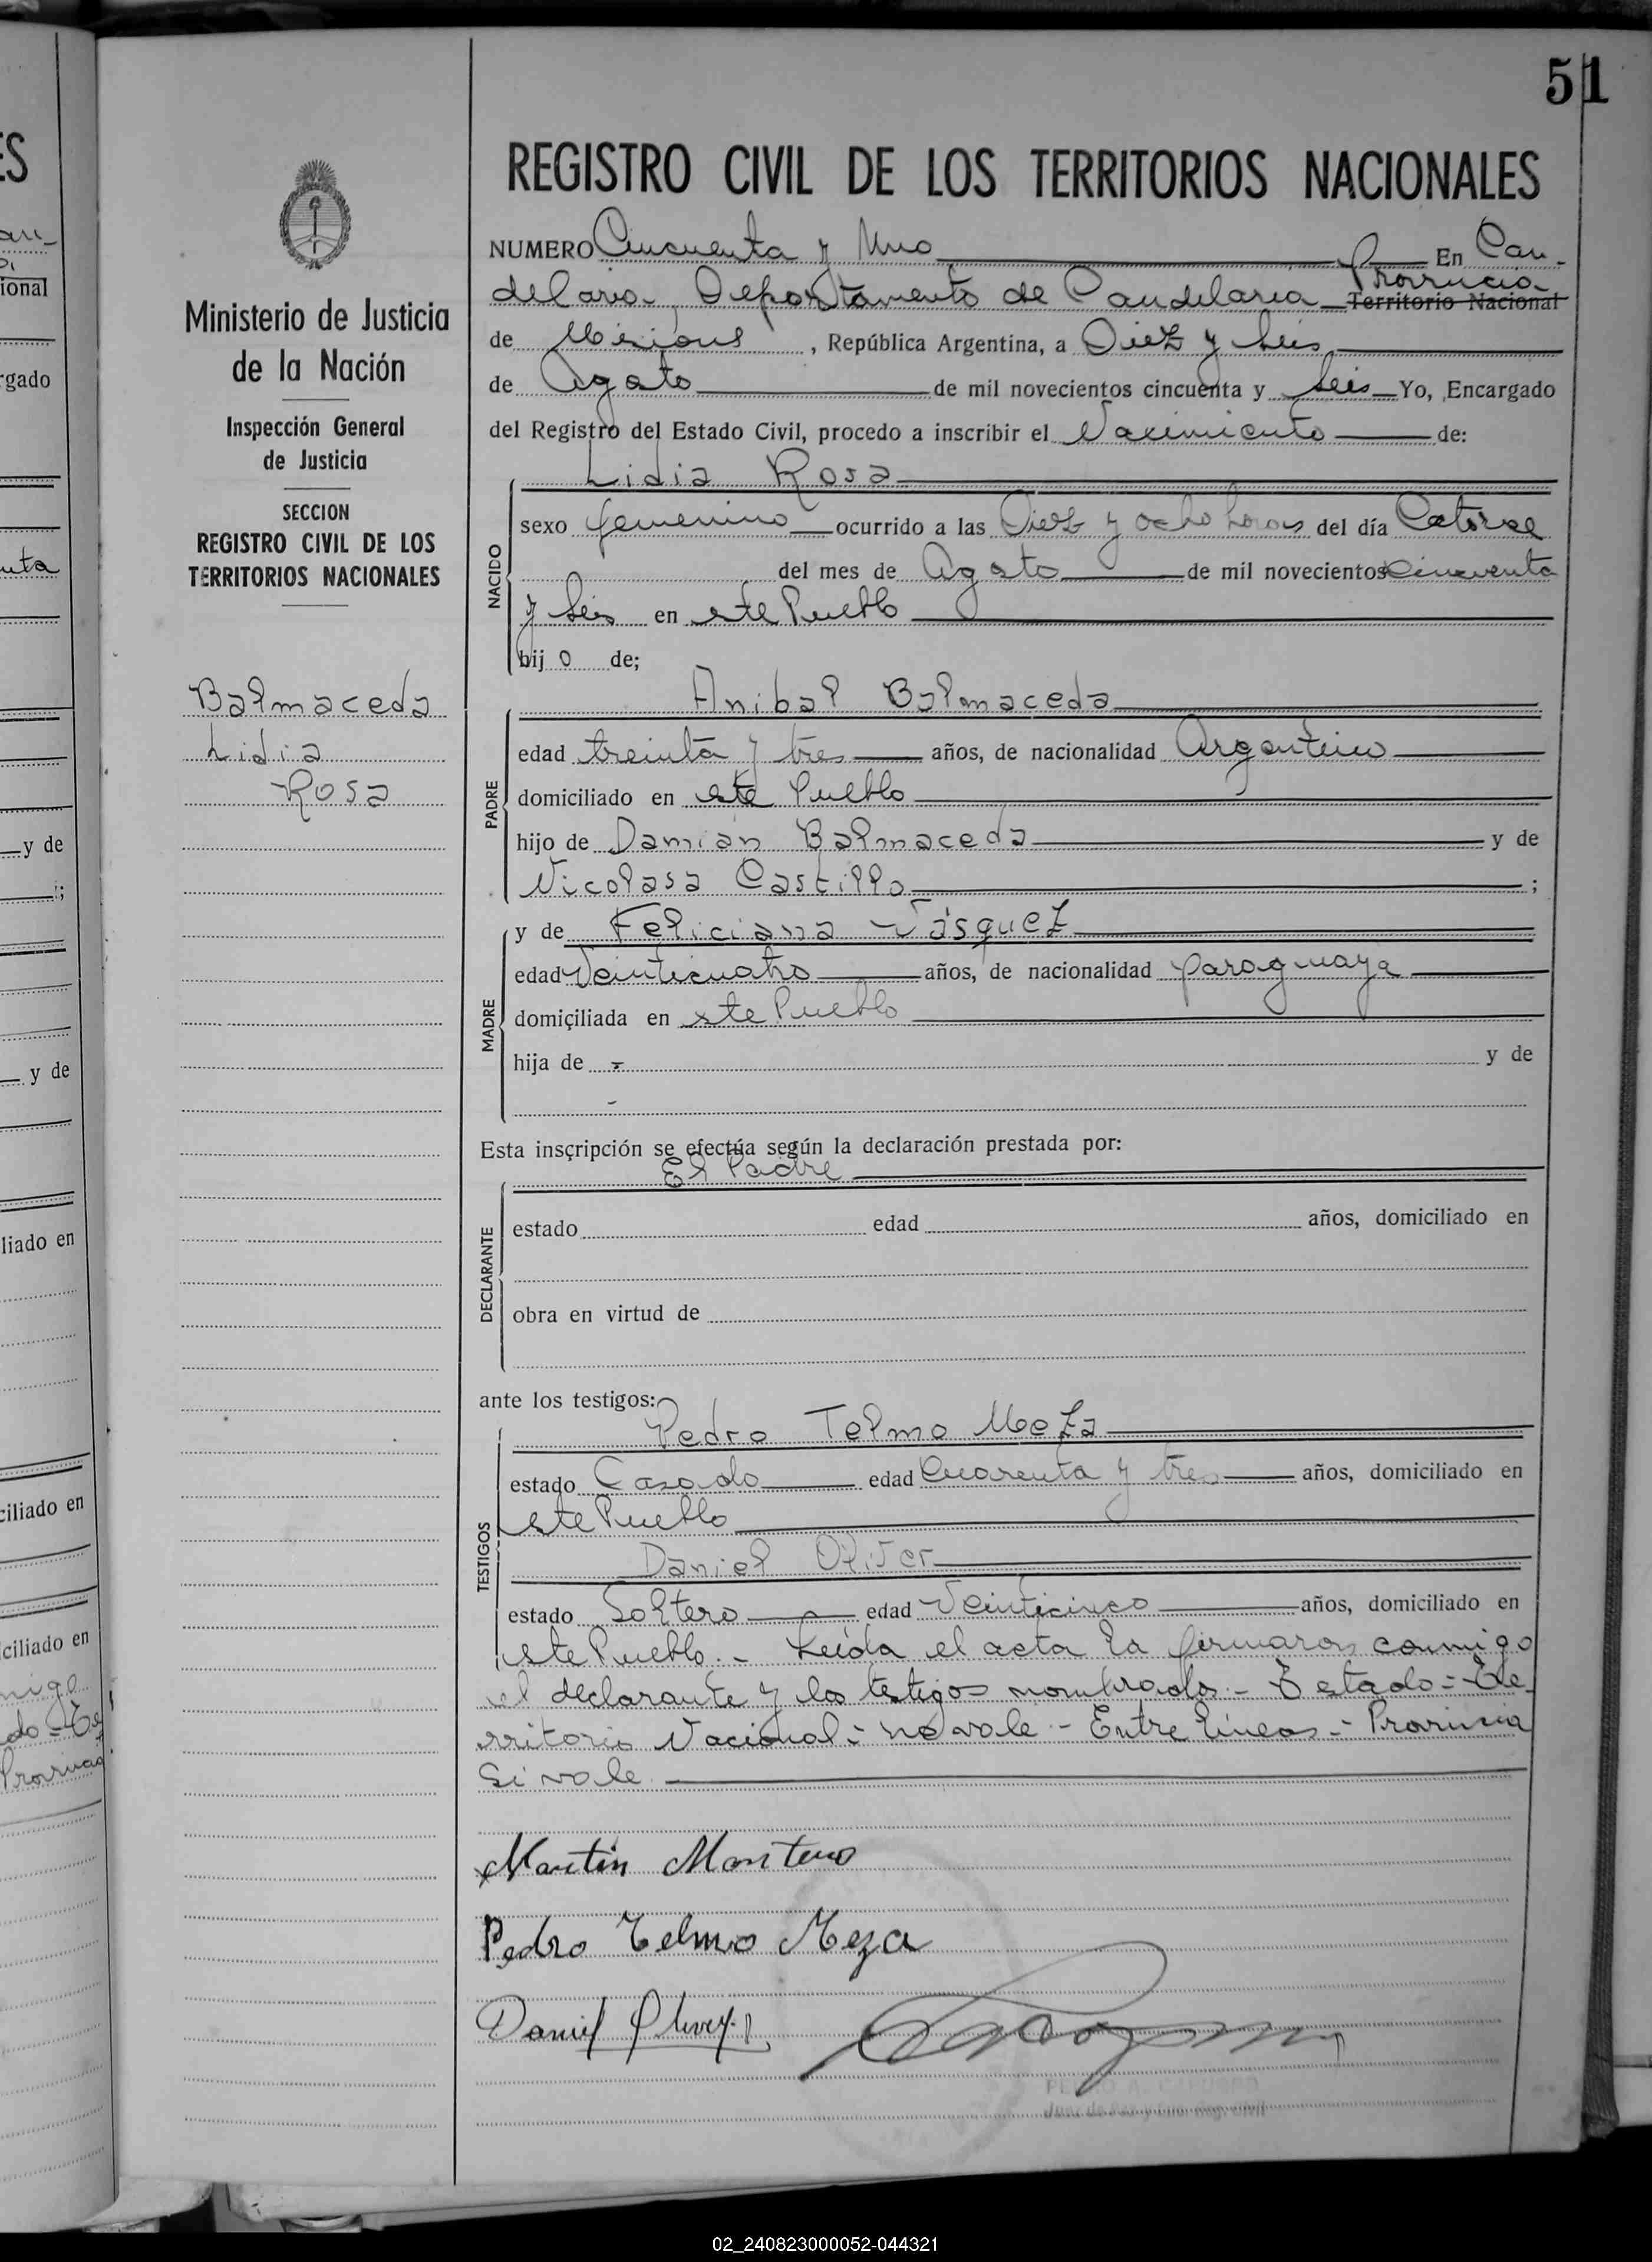 51
REGISTRO CIVIL DE LOS TERRITORIOS NACIONALES
NUMERO Cincuenta y Uno En Can-
delaria, Departamento de Candelaria Provincia
Territorio Nacional
de Misiones, República Argentina, a Diez y Seis
de Agosto de mil novecientos cincuenta y Seis Yo, Encargado
del Registro del Estado Civil, procedo a inscribir el Nacimiento de:
Lidia Rosa
NACIDO
sexo femenino ocurrido a las Diez y ocho horas del día Catorce
del mes de Agosto de mil novecientos Cincuenta
y Seis en este Pueblo
hij o de;
Anibal Balmaceda
PADRE
edad treinta y tres años, de nacionalidad Argentino
domiciliado en este Pueblo
hijo de Damian Balmaceda y de
Nicolasa Castillo ;
MADRE
y de Feliciana Vásquez
edad Veinticuatro años, de nacionalidad paraguaya
domiciliada en este Pueblo
hija de - y de
-
Esta inscripción se efectúa según la declaración prestada por:
El Padre
DECLARANTE
estado edad años, domiciliado en
obra en virtud de
ante los testigos:
Pedro Telmo Meza
TESTIGOS
estado Casado edad Cuarenta y tres años, domiciliado en
este Pueblo
Daniel Oliver
estado Soltero edad Veinticinco años, domiciliado en
este Pueblo.- Leída el acta la firmaron conmigo
el declarante y los testigos nombrados.- Testado = Te
rritorio Nacional - no vale - Entre líneas - Provincia
Si vale.
Martin Montero
Pedro Telmo Meza
Daniel Oliver
Juez de Paz y Enc. Reg. Civil
Ministerio de Justicia
de la Nación
Inspección General
de Justicia
SECCION
REGISTRO CIVIL DE LOS
TERRITORIOS NACIONALES
Balmaceda
Lidia
Rosa
ES
ional
rgado
y de
y de
liado en
ciliado en
ciliado en
Provincia
02_240823000052-044321